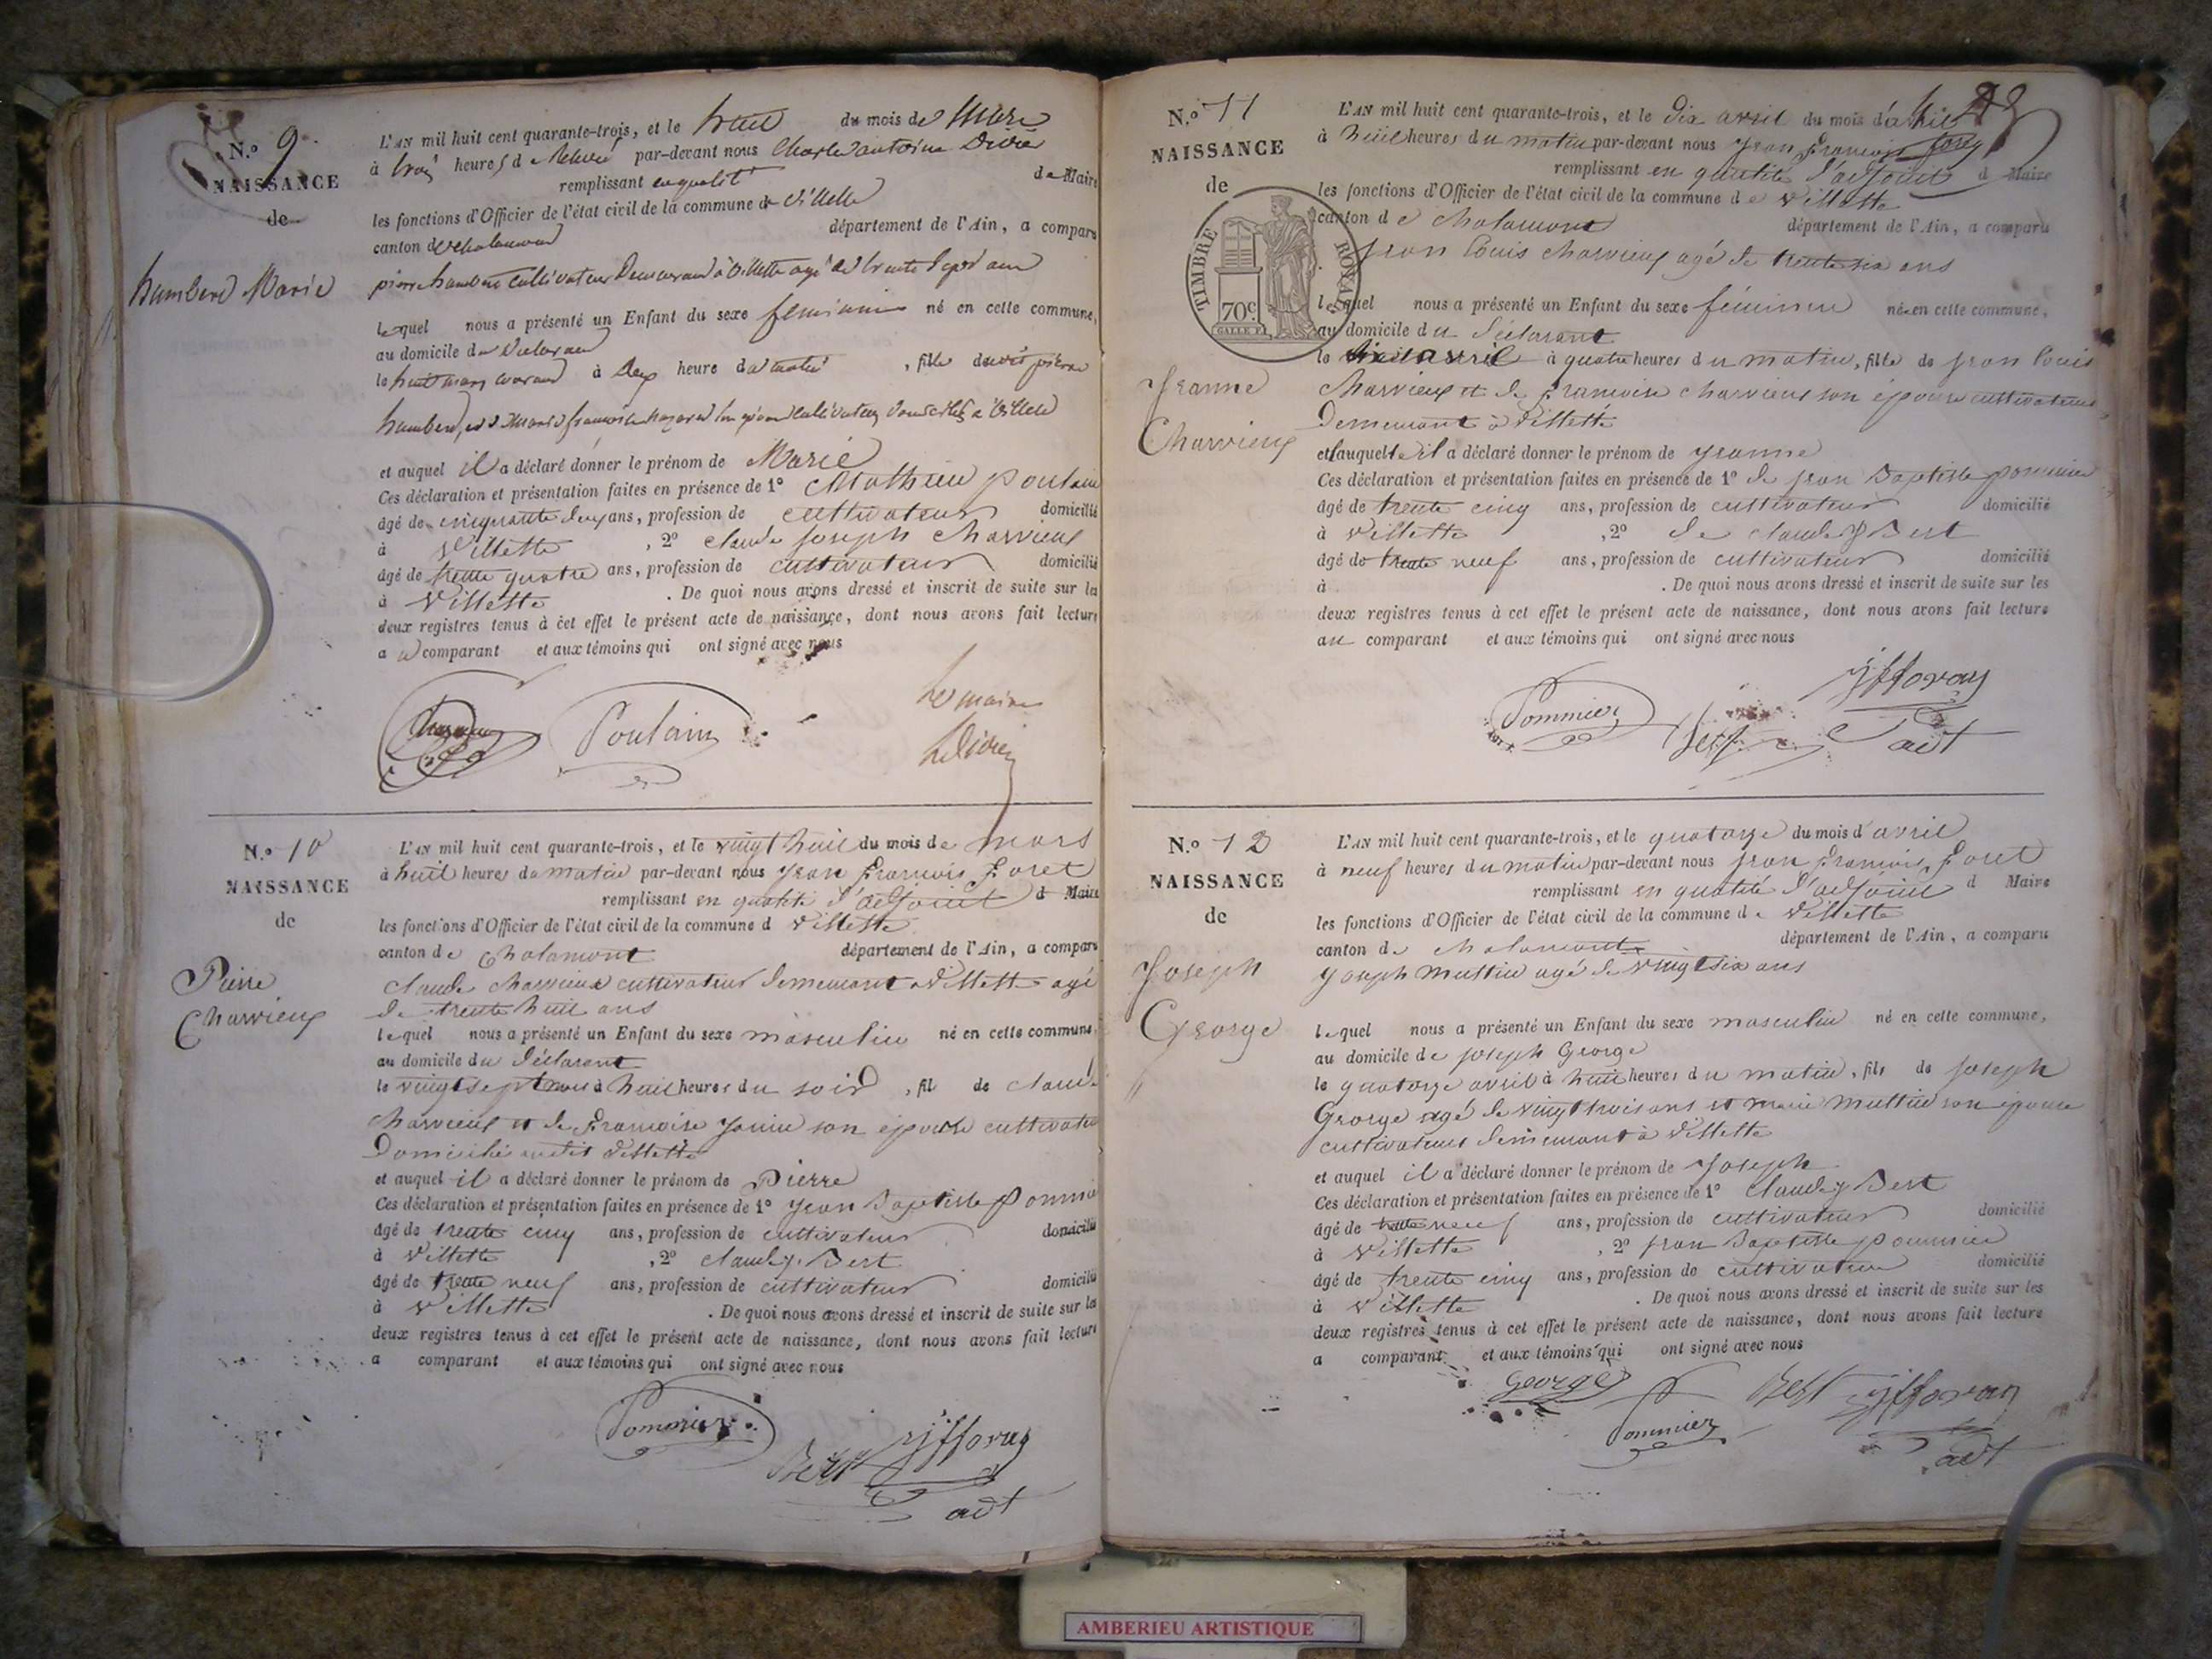 N.o 9
NAISSANCE
de
humbert Marie
L'AN mil huit cent quarante-trois, et le huit du mois de Mars
à trois heures de par-devant nous Charles antoine Didier
remplissant en qualité de Maire
les fonctions d'Officier de l'état civil de la commune de Villette
canton de chalamont département de l'Ain, a comparu
pierre humbert cultivateur Demeurant à Villette agé de trente sept ans
lequel nous a présenté un Enfant du sexe feminin né en cette commune,
au domicile du Déclarant
le huit mars courant à Deux heure du matin, fille dudit pierre
humbert, et de Marie françoise son épouse cultivateurs Domiciliés à Villette
et auquel il a déclaré donner le prénom de Marie
Ces déclaration et présentation faites en présence de 1° Mathieu poulain
âgé de cinquante deux ans, profession de cultivateur domicilié
à Villette, 2° claude joseph charvieux
âgé de trente quatre ans, profession de cultivateur domicilié
à Villette. De quoi nous avons dressé et inscrit de suite sur les
deux registres tenus à cet effet le présent acte de naissance, dont nous avons fait lecture
au comparant et aux témoins qui ont signé avec nous
Poulain
Le maire
Didier
N.o 10
NAISSANCE
de
Pierre
Charvieux
L'AN mil huit cent quarante-trois, et le vingt huit du mois de mars
à huit heures du matin par-devant nous jean françois foret
remplissant en qualité d'adjoint d Maire
les fonctions d'Officier de l'état civil de la commune d villette
canton de chalamont département de l'Ain, a comparu
claude charvieux cultivateur demeurant a villette agé
de trente huit ans
lequel nous a présenté un Enfant du sexe masculin né en cette commune,
au domicile du déclarant
le vingt sept mars à huit heures du soir, fil de claude
charvieux et de françoise janin son épouse cultivateurs
Domiciliés audit villette
et auquel il a déclaré donner le prénom de Pierre
Ces déclaration et présentation faites en présence de 1° jean Baptiste Pommier
âgé de trente cinq ans, profession de cultivateur domicilié
à villette, 2° claude j. Bert
âgé de trente neuf ans, profession de cultivateur domicilié
à villette. De quoi nous avons dressé et inscrit de suite sur les
deux registres tenus à cet effet le présent acte de naissance, dont nous avons fait lecture
a comparant et aux témoins qui ont signé avec nous
Pommier
Bert
adt
N.o 11
NAISSANCE
de
TIMBRE ROYAL
70c.
Jeanne
Charvieux
L'AN mil huit cent quarante-trois, et le dix avril du mois d'avril
à huit heures du matin par-devant nous jean françois foret
remplissant en qualité d'adjoint d Maire
les fonctions d'Officier de l'état civil de la commune de villette
canton de chalamont département de l'Ain, a comparu
jean louis charvieux agé de trente six ans
lequel nous a présenté un Enfant du sexe féminin né en cette commune,
au domicile du déclarant
le dix avril à quatre heures du matin, fille de jean louis
charvieux et de françoise charvieux son épouse cultivateurs
Demeurant à villette
et auquelle il a déclaré donner le prénom de jeanne
Ces déclaration et présentation faites en présence de 1° de jean Baptiste pommier
âgé de trente cinq ans, profession de cultivateur domicilié
à villette, 2° de claude j Bert
âgé de trente neuf ans, profession de cultivateur domicilié
à . De quoi nous avons dressé et inscrit de suite sur les
deux registres tenus à cet effet le présent acte de naissance, dont nous avons fait lecture
au comparant et aux témoins qui ont signé avec nous
Pommier
Bert
adt
N.o 12
NAISSANCE
de
Joseph
George
L'AN mil huit cent quarante-trois, et le quatorze du mois d'avril
à neuf heures du matin par-devant nous jean françois foret
remplissant en qualité d'adjoint d Maire
les fonctions d'Officier de l'état civil de la commune de villette
canton de chalamont département de l'Ain, a comparu
joseph muttin agé de vingt six ans
lequel nous a présenté un Enfant du sexe masculin né en cette commune,
au domicile de joseph George
le quatorze avril à huit heures du matin, fils de joseph
George agé de vingt trois ans et marie muttin son épouse
cultivateurs demeurant à villette
et auquel il a déclaré donner le prénom de joseph
Ces déclaration et présentation faites en présence de 1° claude j Bert
âgé de trente neuf ans, profession de cultivateur domicilié
à villette, 2° jean Baptiste pommier
âgé de trente cinq ans, profession de cultivateur domicilié
à villette. De quoi nous avons dressé et inscrit de suite sur les
deux registres tenus à cet effet le présent acte de naissance, dont nous avons fait lecture
a comparant et aux témoins qui ont signé avec nous
George
Pommier
Bert
adt
AMBERIEU ARTISTIQUE